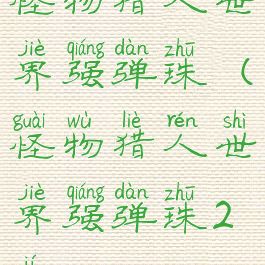 怪物猎人世
jiè qiáng dàn zhū
界强弹珠（
guài wù liè rén shì
怪物猎人世
jiè qiáng dàn zhū
界强弹珠2
jí